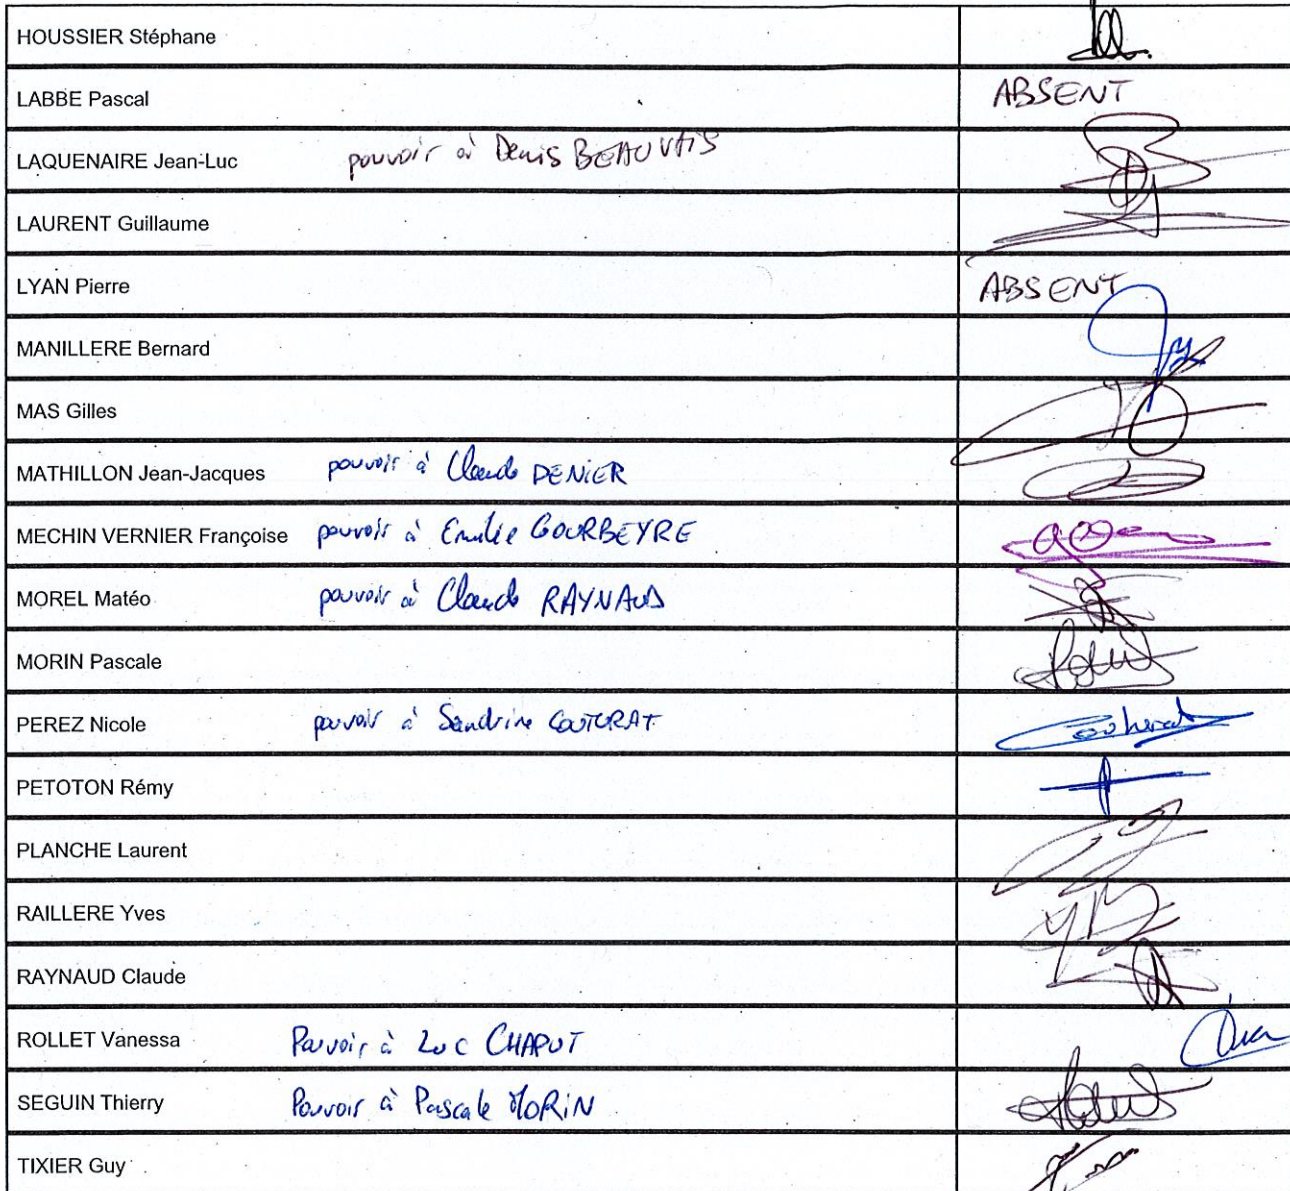 HOUSSIER Stéphane
LABBE Pascal ABSENT
LAQUENAIRE Jean-Luc pouvoir à Denis BEAUVAIS
LAURENT Guillaume
LYAN Pierre ABSENT
MANILLERE Bernard
MAS Gilles
MATHILLON Jean-Jacques pouvoir à Claude DENIER
MECHIN VERNIER Françoise pouvoir à Emilie GOURBEYRE
MOREL Matéo pouvoir à Claude RAYNAUD
MORIN Pascale
PEREZ Nicole pouvoir à Sandrine COUTURAT
PETOTON Rémy
PLANCHE Laurent
RAILLERE Yves
RAYNAUD Claude
ROLLET Vanessa Pouvoir à Luc CHAPUT
SEGUIN Thierry Pouvoir à Pascale MORIN
TIXIER Guy